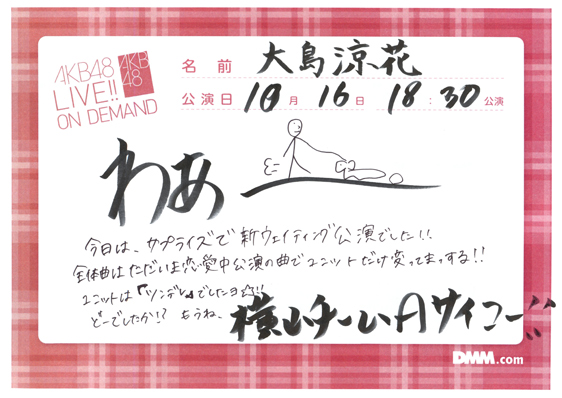 AKB48
LIVE!!
ON DEMAND
AKB
48
名前 大島涼花
公演日 10月 16日 18:30公演
わあ
今日は、サプライズで新ウェイティング公演でした!!
全体曲はただいま恋愛中公演の曲でユニットだけ変ってまっする!!
ユニットは『ツンデレ』でしたヨ☆!!
どーでしたか!? もうね、横山チームAサイコー!!
DMM.com